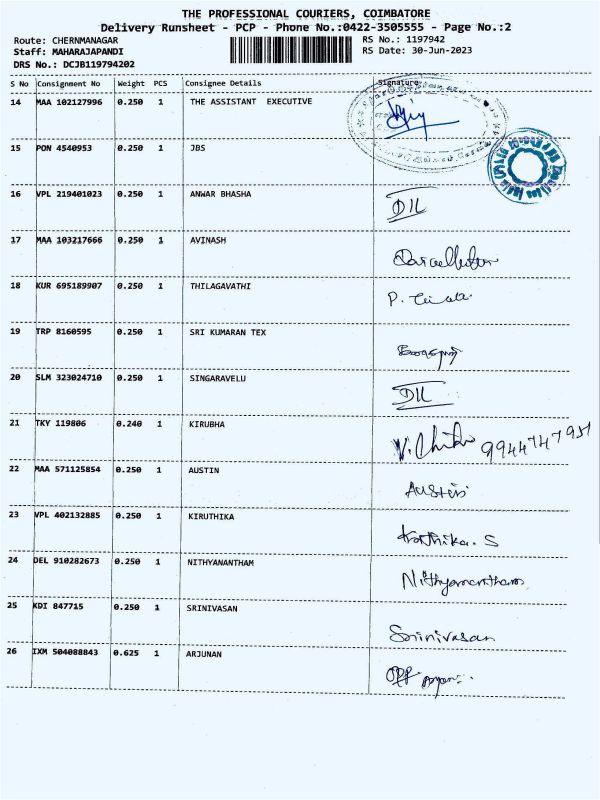 THE PROFESSIONAL COURIERS, COIMBATORE
Delivery Runsheet - PCP - Phone No.:0422-3505555 - Page No.:2
Route: CHERNMANAGAR RS No.: 1197942
Staff: MAHARAJAPANDI RS Date: 30-Jun-2023
DRS No.: DCJB119794202
S No Consignment No Weight PCS Consignee Details Signature
14 MAA 102127996 0.250 1 THE ASSISTANT EXECUTIVE
15 PON 4540953 0.250 1 JBS
16 VPL 219401023 0.250 1 ANWAR BHASHA DIL
17 MAA 103217666 0.250 1 AVINASH
18 KUR 695189907 0.250 1 THILAGAVATHI
19 TRP 8160595 0.250 1 SRI KUMARAN TEX
20 SLM 323024710 0.250 1 SINGARAVELU DIL
21 TKY 119806 0.240 1 KIRUBHA 9944747951
22 MAA 571125854 0.250 1 AUSTIN Austin
23 VPL 402132885 0.250 1 KIRUTHIKA Karthika. S
24 DEL 910282673 0.250 1 NITHYANANTHAM Nithyanantham
25 KDI 847715 0.250 1 SRINIVASAN Srinivasan
26 IXM 504088843 0.625 1 ARJUNAN